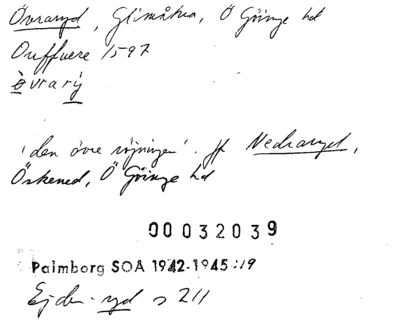 Övraryd, Glimåkra, Ö Göinge hd
Ouffuere 1597
èvrarý
'den övre röjningen'. Jf Nedraryd,
Örkened, Ö Göinge hd
00032039
Palmborg SOA 1942-1945:19
Ejder-ryd s 211